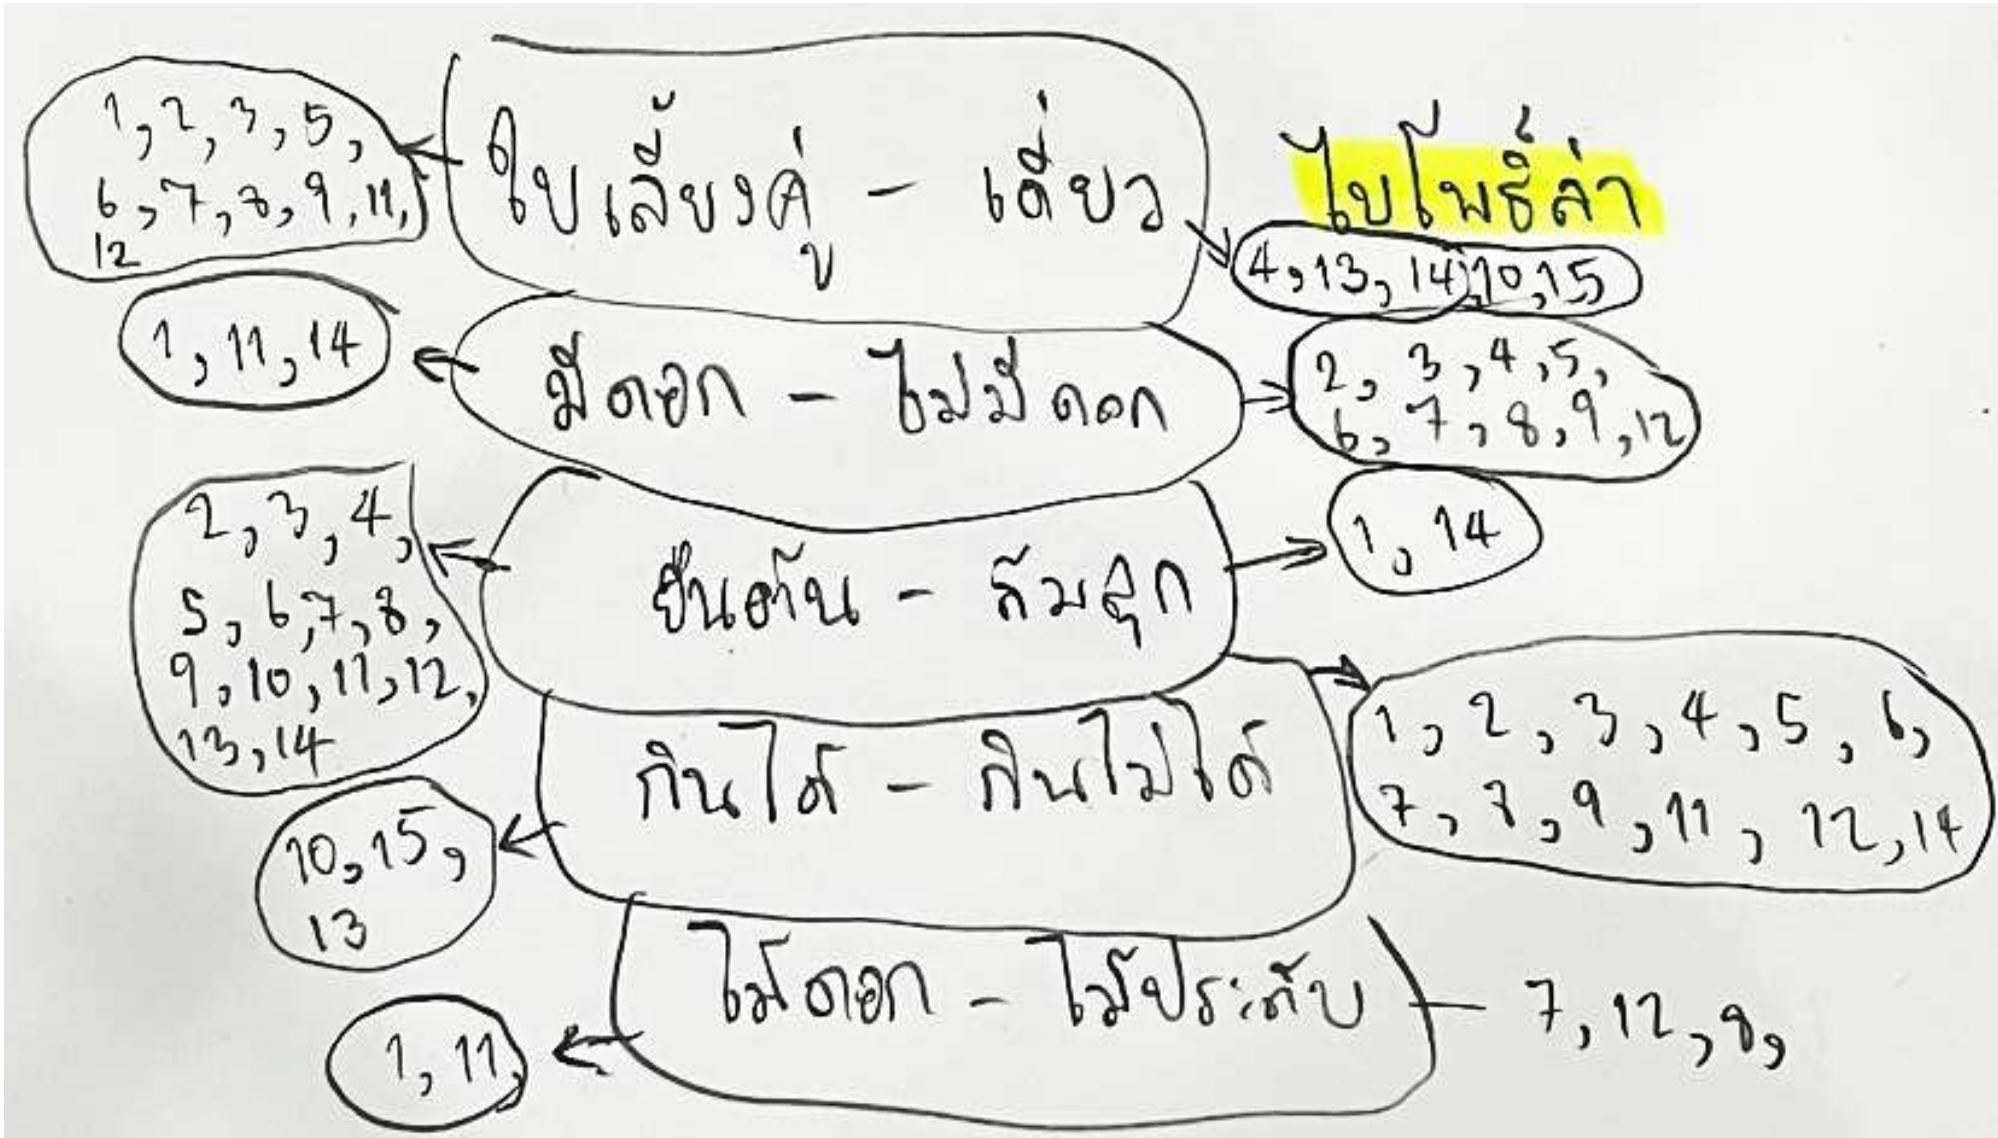 1, 2, 3, 5,
6, 7, 8, 9, 11,
12
ใบเลี้ยงคู่ - เดี่ยว
ใบโพธิ์ล่า
4, 13, 14, 10, 15
1, 11, 14
มีดอก - ไม่มีดอก
2, 3, 4, 5,
6, 7, 8, 9, 12
2, 3, 4,
5, 6, 7, 8,
9, 10, 11, 12,
13, 14
ยืนต้น - ล้มลุก
1, 14
กินได้ - กินไม่ได้
1, 2, 3, 4, 5, 6,
7, 8, 9, 11, 12, 14
10, 15,
13
ไม้ดอก - ไม้ประดับ
7, 12, 8,
1, 11,